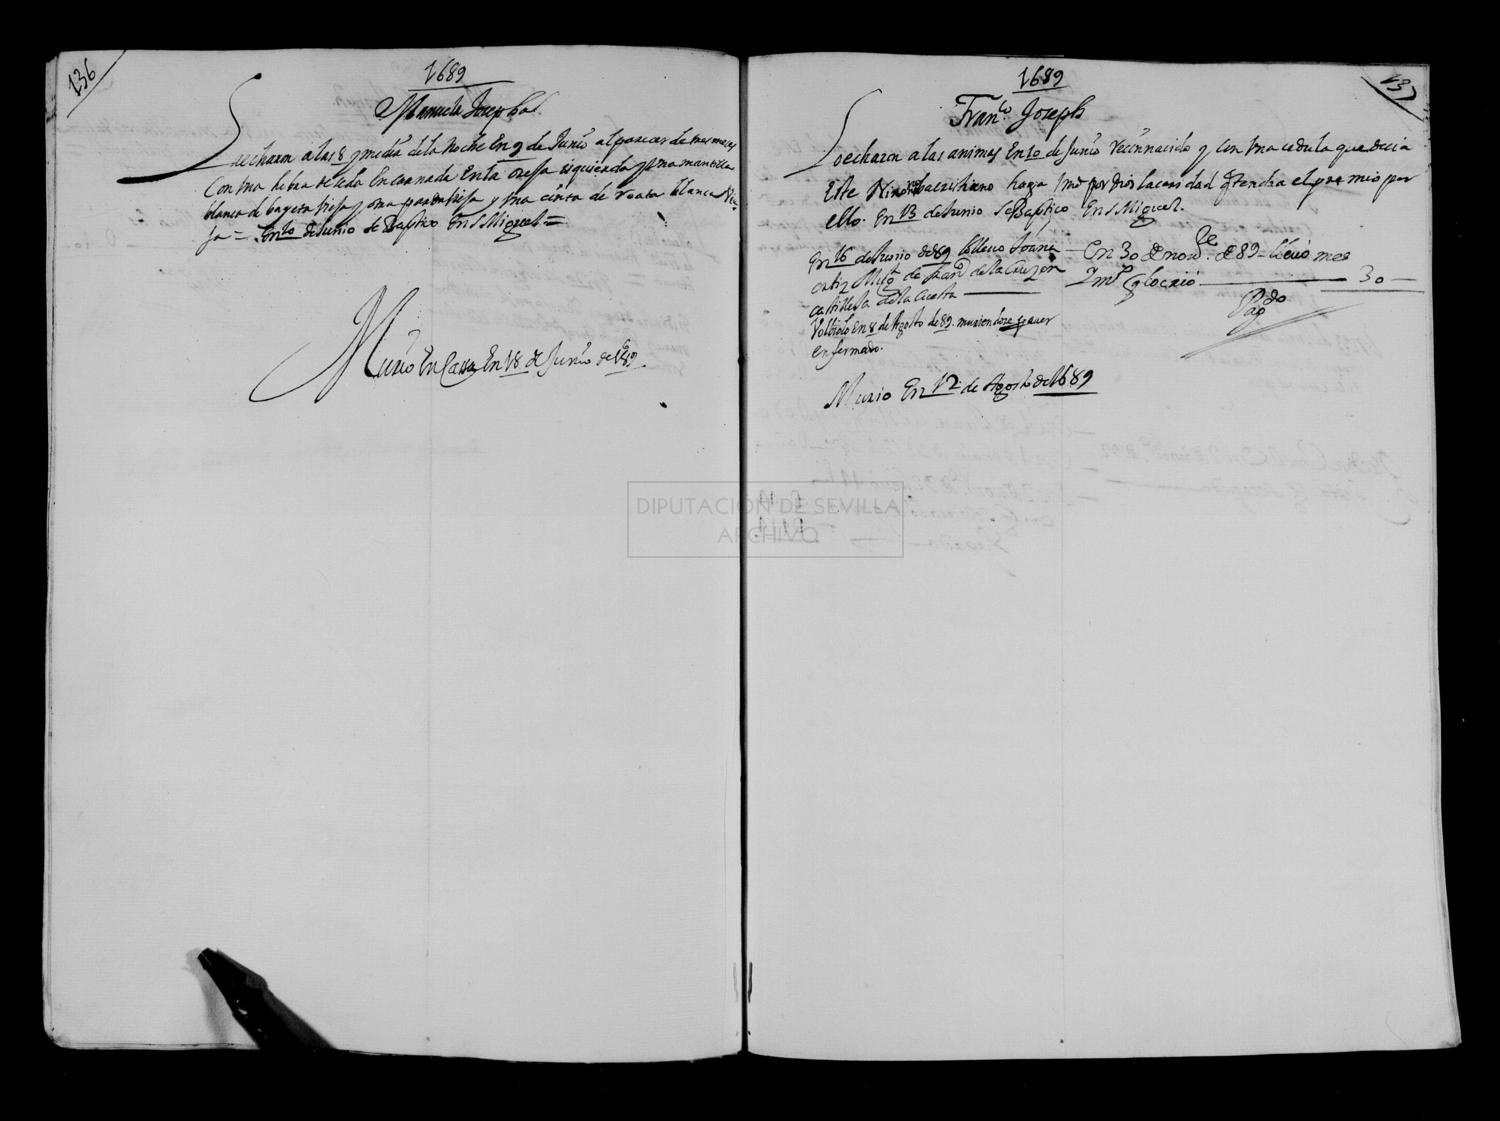 136
1689
Manuela Josepha
La echaron a las 8 y media de la noche En 9 de Junio al parecer de tres meses
Con Una hebra de seda Encarnada En la oreja isquierda y Una mantilla
blanca de bayeta Vieja y otra parda Vieja y Una cinta de reata blanca Vie
ja = En 10 de Junio se Baptiço En S Miguel =
Murio En Cassa En 18 de Junio de 689
137
1689
Franco Joseph
Lo echaron a las animas En 10 de Junio recinnacido y Con Una cedula que decia
Este Nino baeristiano haga Vmd por dios la caridad q tendra el premio por
ello. En 13 de Junio se Baptiço En S Miguel.
En 16 de Junio de 89 lo lleuo Joana
ortiz Mugr de Juan de la Cruz en
castilleja de la Cuesta
Voluiolo En 8 de Agosto de 89. muriendose por auer
enfermado.
Murio En 12 de Agosto de 1689
En 30 de novre de 89 lleuo mes
y mo q lo crió 30
Pagdo
DIPUTACIÓN DE SEVILLA
ARCHIVO